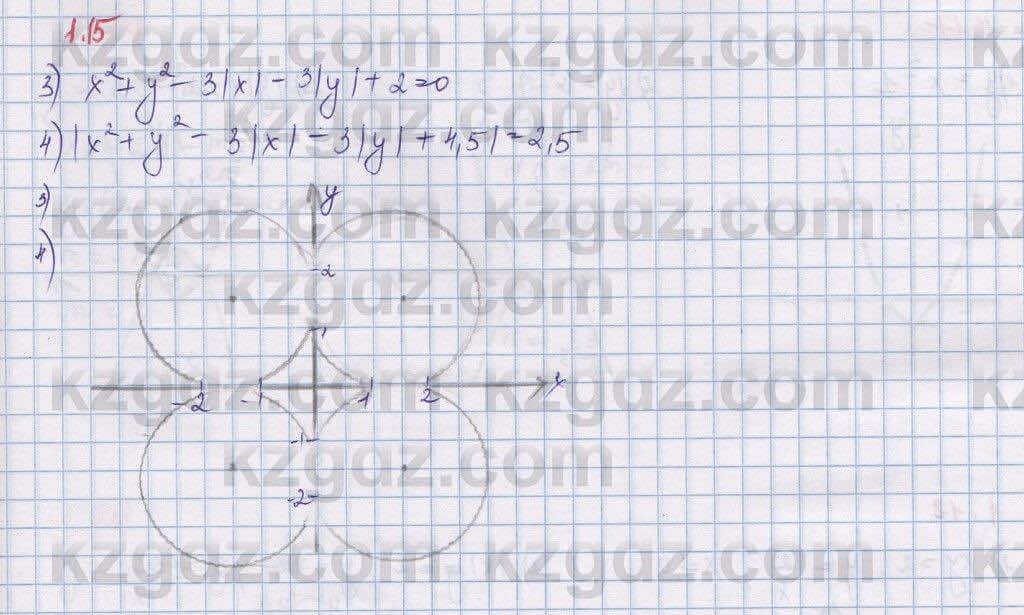 1.15
3) x²+y²-3|x|-3|y|+2=0
4) |x²+y²-3|x|-3|y|+4,5|=2,5
3)
4)
y
2
1
-2 -1 1 2 x
-1
-2
kzgdz.com kzgdz.com
kzgdz.com
kzgdz.com kzgdz.com
kzgdz.com
kzgdz.com kzgdz.com
kzgdz.com
kzgdz.com kzgdz.com